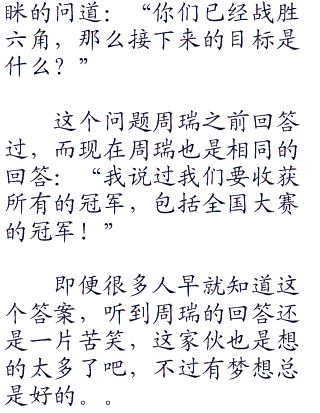 眯的问道：“你们已经战胜
六角，那么接下来的目标是
什么？”
这个问题周瑞之前回答
过，而现在周瑞也是相同的
回答：“我说过我们要收获
所有的冠军，包括全国大赛
的冠军！”
即便很多人早就知道这
个答案，听到周瑞的回答还
是一片苦笑，这家伙也是想
的太多了吧，不过有梦想总
是好的。。